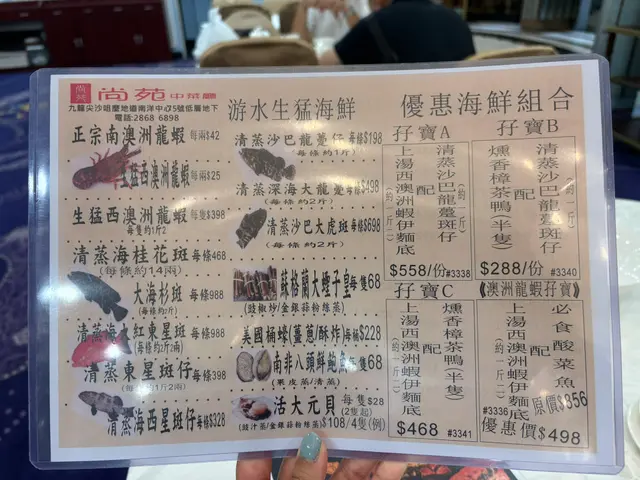 尚苑 尚苑 中菜廳
九龍尖沙咀麼地道南洋中心75號低層地下
電話:2868 6898
正宗南澳洲龍蝦 每兩$42
生猛西澳洲龍蝦 每兩$25
生猛西澳洲龍蝦 每隻$398
每隻約1斤2
清蒸海桂花斑 每條468
(每條約14兩)
大海杉斑 每條988
清蒸海紅東星斑 每條988
清蒸東星斑仔 每條398
(每條約1斤2兩)
清蒸海西星斑仔 每條$328
游水生猛海鮮
清蒸沙巴龍躉仔 每條$198
(每條約1斤)
清蒸深海大龍躉 每條$498
(每條約2斤)
清蒸沙巴大虎斑 每條$698
(每條約2斤)
蘇格蘭大蟶子皇 每隻68
(豉椒炒/金銀蒜粉絲蒸)
美國桶蠔(薑蔥/酥炸) 每桶$228
南非八頭鮮鮑魚 每隻68
(果皮蒸/清蒸)
活大元貝 每隻$28
(2隻起)
(豉汁蒸/金銀蒜粉絲蒸) $108/4隻(例)
優惠海鮮組合
孖寶A
清蒸沙巴龍躉斑仔
(約一斤)
配
上湯西澳洲蝦伊麵底
(約一斤二)
$558/份 #3338
孖寶B
清蒸沙巴龍躉斑仔
(約一斤)
配
燻香樟茶鴨(半隻)
$288/份 #3340
孖寶C
燻香樟茶鴨(半隻)
配
上湯西澳洲蝦伊麵底
(約一斤二)
$468 #3341
《澳洲龍蝦孖寶》
必食酸菜魚
配
上湯西澳洲蝦伊麵底
(約一斤二)
原價$856
#3336 優惠價$498